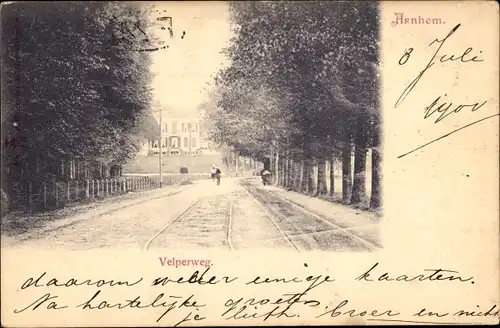 Arnhem.
8 Juli
1900
Velperweg.
daarom weder eenige kaarten.
Na hartelijke groeten
je liefh. Broer en nicht